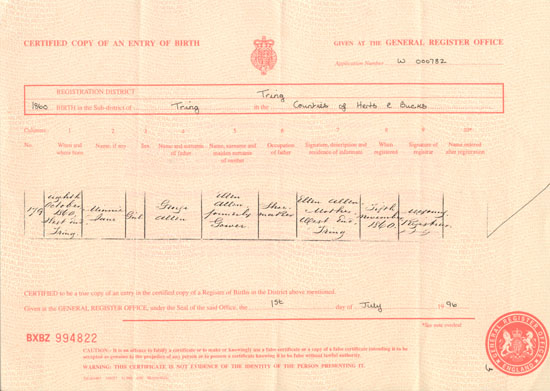 CERTIFIED COPY OF AN ENTRY OF BIRTH
GIVEN AT THE GENERAL REGISTER OFFICE
Application Number W 000782
REGISTRATION DISTRICT Tring
1860 BIRTH in the Sub-district of Tring in the Counties of Herts & Bucks
Columns:- 1 2 3 4 5 6 7 8 9 10*
No. When and where born Name, if any Sex Name and surname of father Name, surname and maiden surname of mother Occupation of father Signature, description and residence of informant When registered Signature of registrar Name entered after registration
179 Eighth October 1860 West End Tring Minnie Jane Girl George Allen Ellen Allen formerly Gower Shoe maker Ellen Allen Mother West End Tring Fifth November 1860 Registrar
CERTIFIED to be a true copy of an entry in the certified copy of a Register of Births in the District above mentioned.
Given at the GENERAL REGISTER OFFICE, under the Seal of the said Office, the 1st day of July 1996
*See note overleaf
BXBZ 994822
CAUTION:- It is an offence to falsify a certificate or to make or knowingly use a false certificate or a copy of a false certificate intending it to be
accepted as genuine to the prejudice of any person or to possess a certificate knowing it to be false without lawful authority.
WARNING: THIS CERTIFICATE IS NOT EVIDENCE OF THE IDENTITY OF THE PERSON PRESENTING IT.
GENERAL REGISTER OFFICE ENGLAND